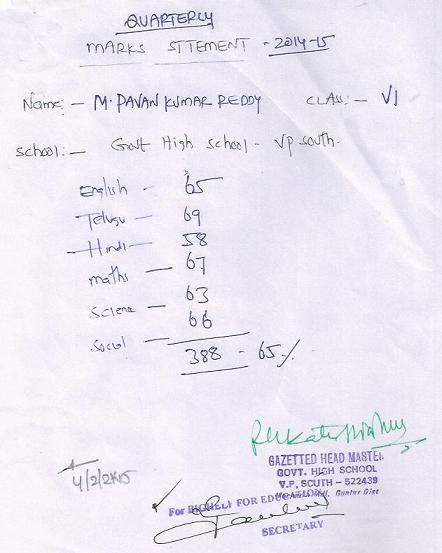 QUARTERLY
MARKS STTEMENT - 2014-15
Name:- M. PAVAN KUMAR REDDY CLASS:- VI
School:- Govt High School - VP South.
English - 65
Telugu - 69
Hindi - 58
maths - 67
Science - 63
Social - 66
388 - 65%
GAZETTED HEAD MASTER
GOVT. HIGH SCHOOL
V.P. SOUTH - 522439
Guntur Dist
4/2/2015
For FOR EDUCATION
SECRETARY